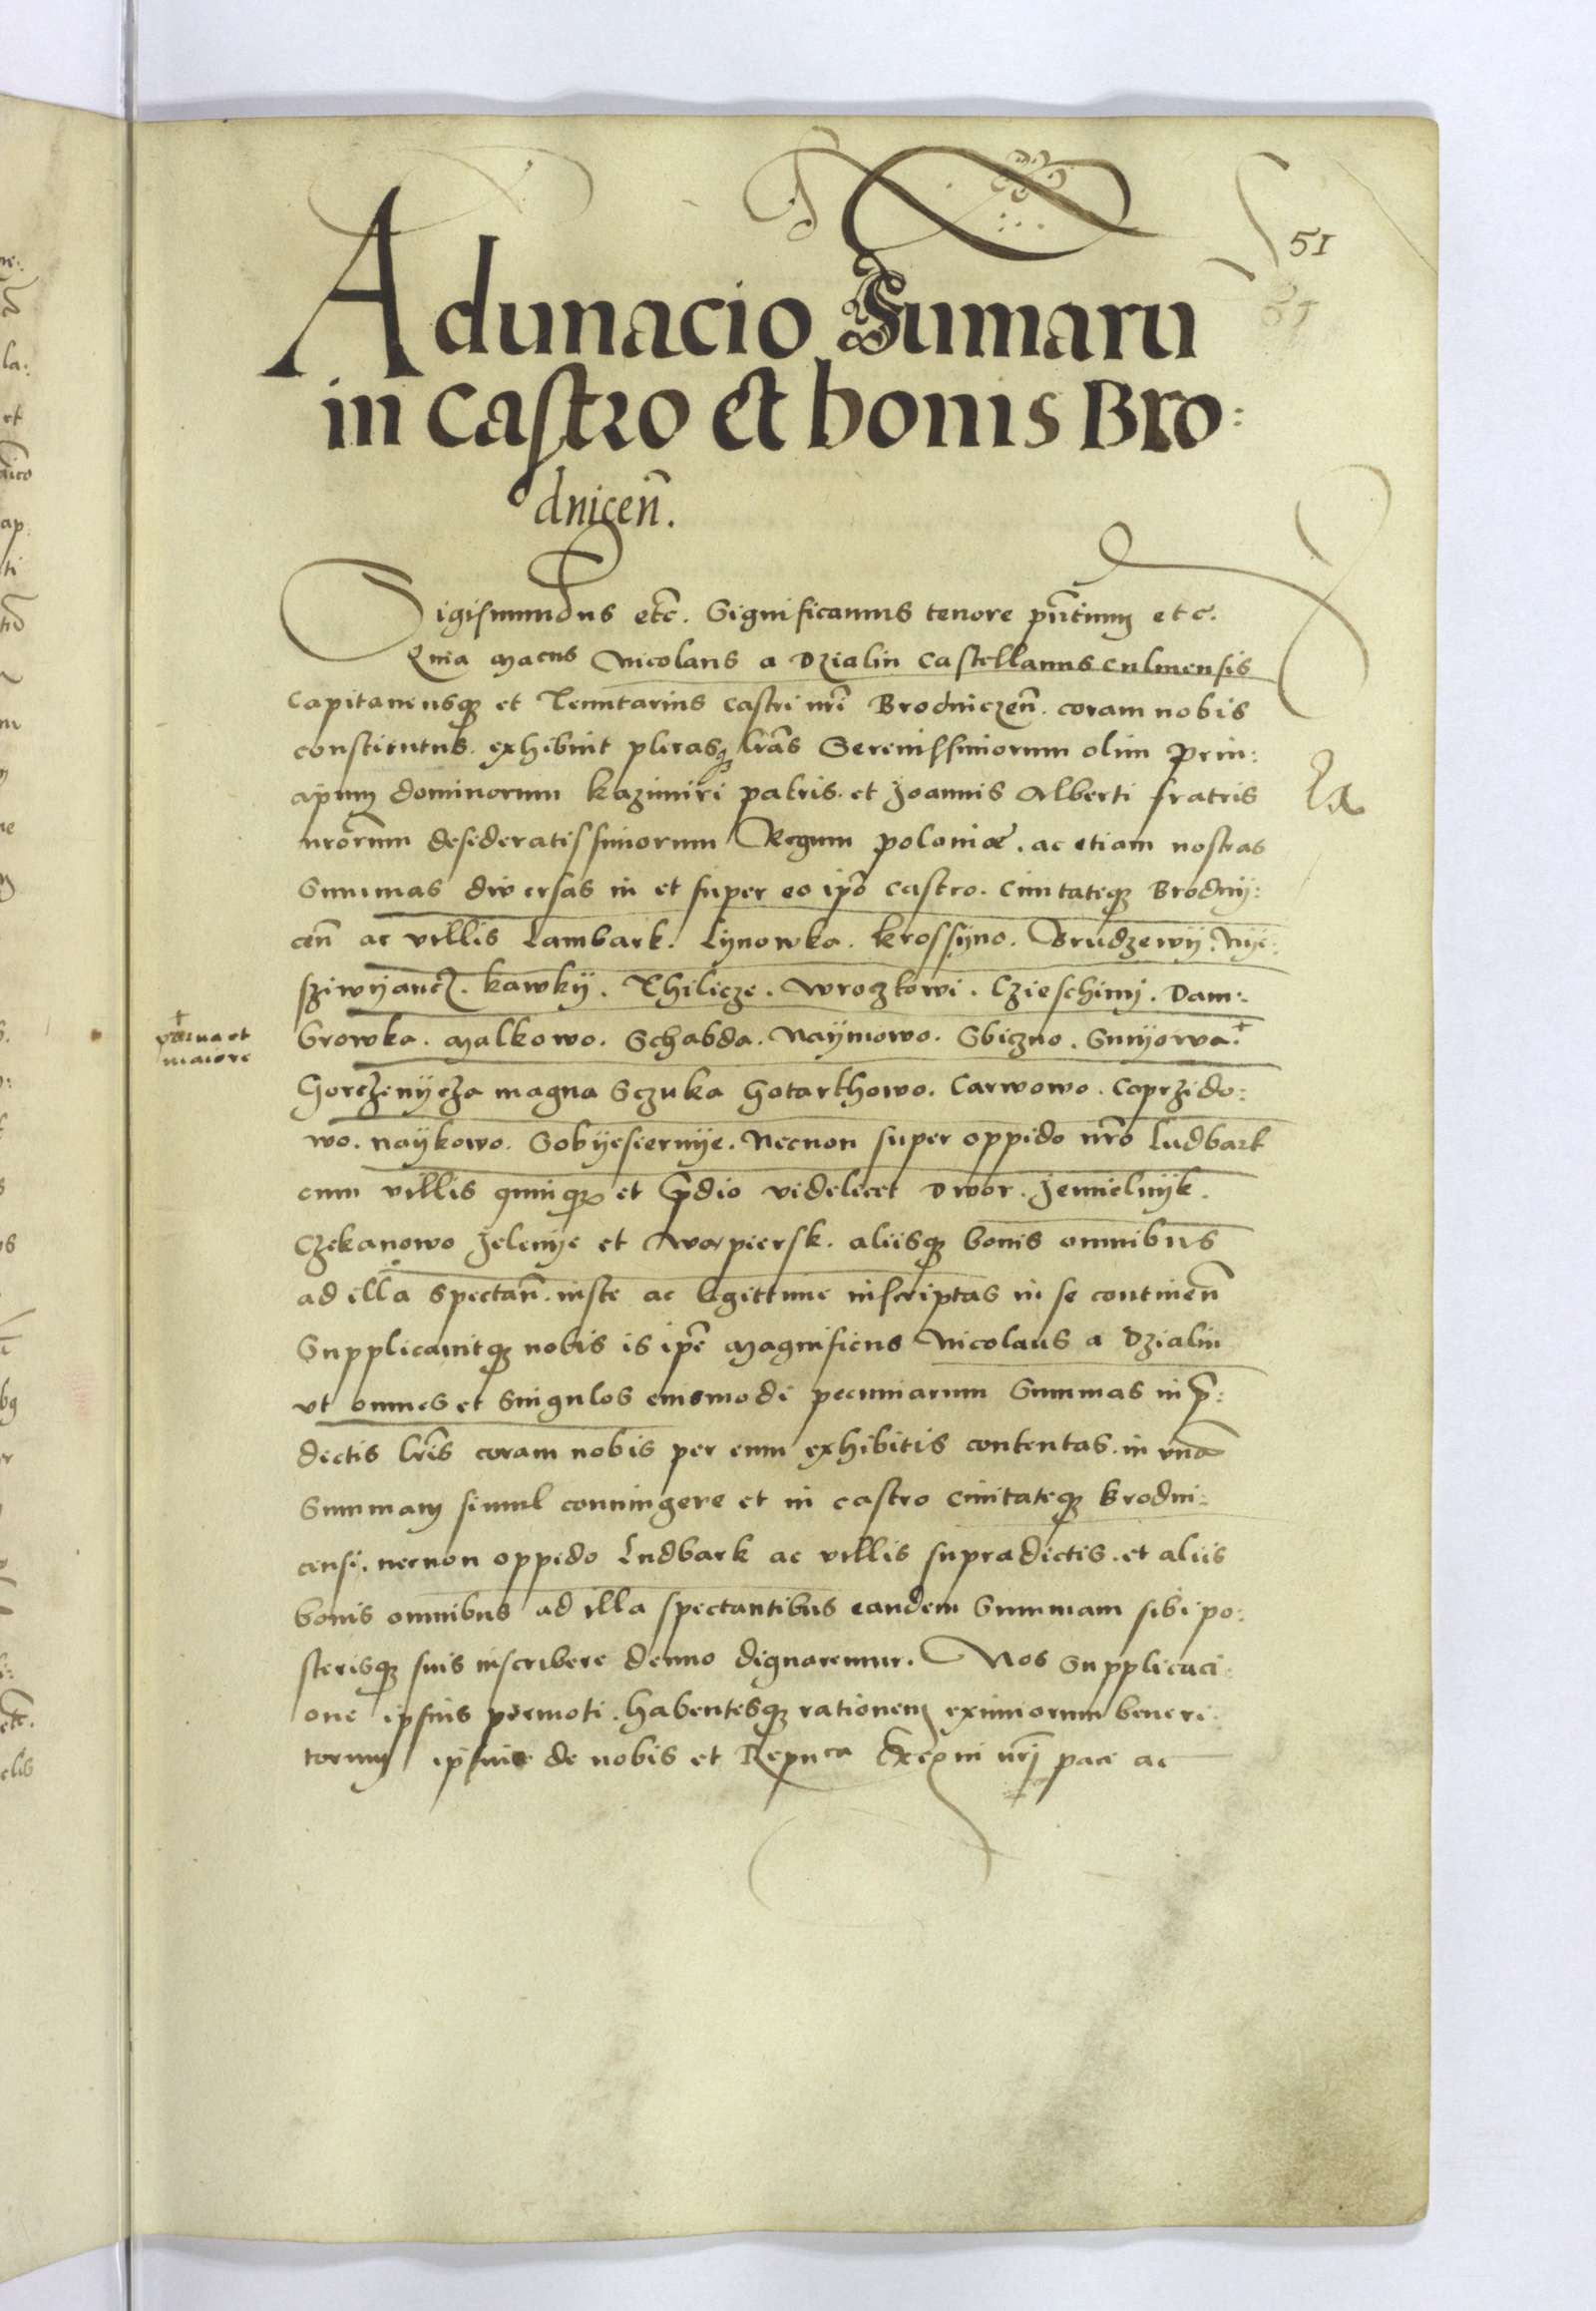 51
Adunacio Sumaru
in Castro et bonis Bro:
dnicen̄.
Sigismundus etc̄. Significamus tenore pñtium etc.
Quia Mag̃cus Nicolaus a Dzialin Castellanus Culmensis
Capitaneusq3 et Tenutarius castri nr̄i Brodniczen̄. coram nobis
constitutus. exhibuit plerasq3 lr̄as Serenissimorum olim Prin:
cipum dominorum Kazimiri patris. et Joannis Alberti fratris
nrōrum desideratissimorum Regum poloniæ. ac etiam nostras
Summas diversas in et super eo ipō castro. Civitateq3 Brodny:
cen̄ ac villis Lambark. Lynowka. Krossyno. Brudzewy. Nye:
sziwyancz. Kawky. Thilicze. Wroczkowi. Czieschimy. Dam:
browka. Malkowo. Schabda. Naymowo. Sbiczno. Smyowa. +
+ parva et
maiore
Gorczenycza magna Sczuka Gotarthowo. Carwowo. Caprzido:
wo. Naykowo. Sobyesiernye. Necnon super oppido nr̄o Ludbark
cum villis quinq3 et p̄dio videlicet Dwor. Jemielnyk.
Czekanowo Jelenye et Warpiersk. aliisq3 bonis omnibus
ad illa spectan̄. iuste ac legittime inscriptas in se continen̄
Supplicavitq3 nobis is ip̄e Magnificus Nicolaus a Dzialin
ut omnes et singulos eiusmodi pecuniarum Summas in p̄:
dictis lr̄is coram nobis per eum exhibitis contentas. in unā
Summam simul coniungere et in castro Civitateq3 Brodni:
censi. necnon oppido Ludbark ac villis supradictis. et aliis
bonis omnibus ad illa spectantibus eandem Summam sibi po:
sterisq3 suis inscribere denuo dignaremur. Nos Supplicaci:
one ipsius permoti. habentesq3 rationem eximiorum beneri:
torum ipsius de nobis et Repu^ca Regni nr̄i pace ac